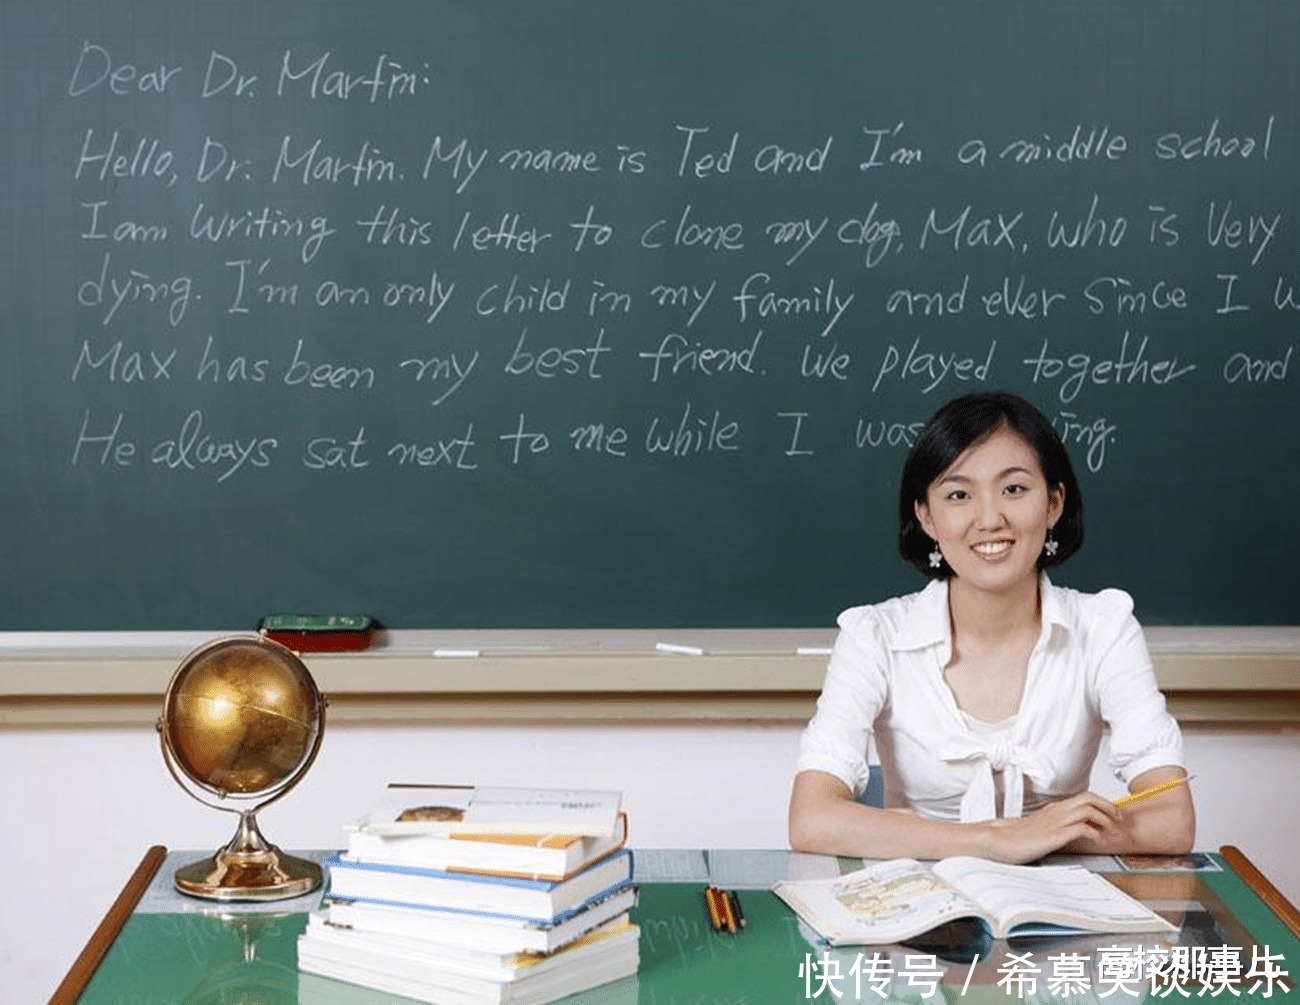 Dear Dr. Martin:
Hello, Dr. Martin. My name is Ted and I'm a middle school
I am writing this letter to clone my dog, Max, who is very
dying. I'm an only child in my family and ever since I w
Max has been my best friend. We played together and
He always sat next to me while I was ing.
高校那事儿
快传号 / 希慕笑谈娱乐